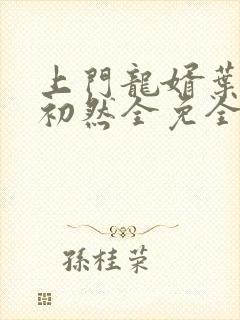 上門龍婿葉
初然全免全
孫桂榮